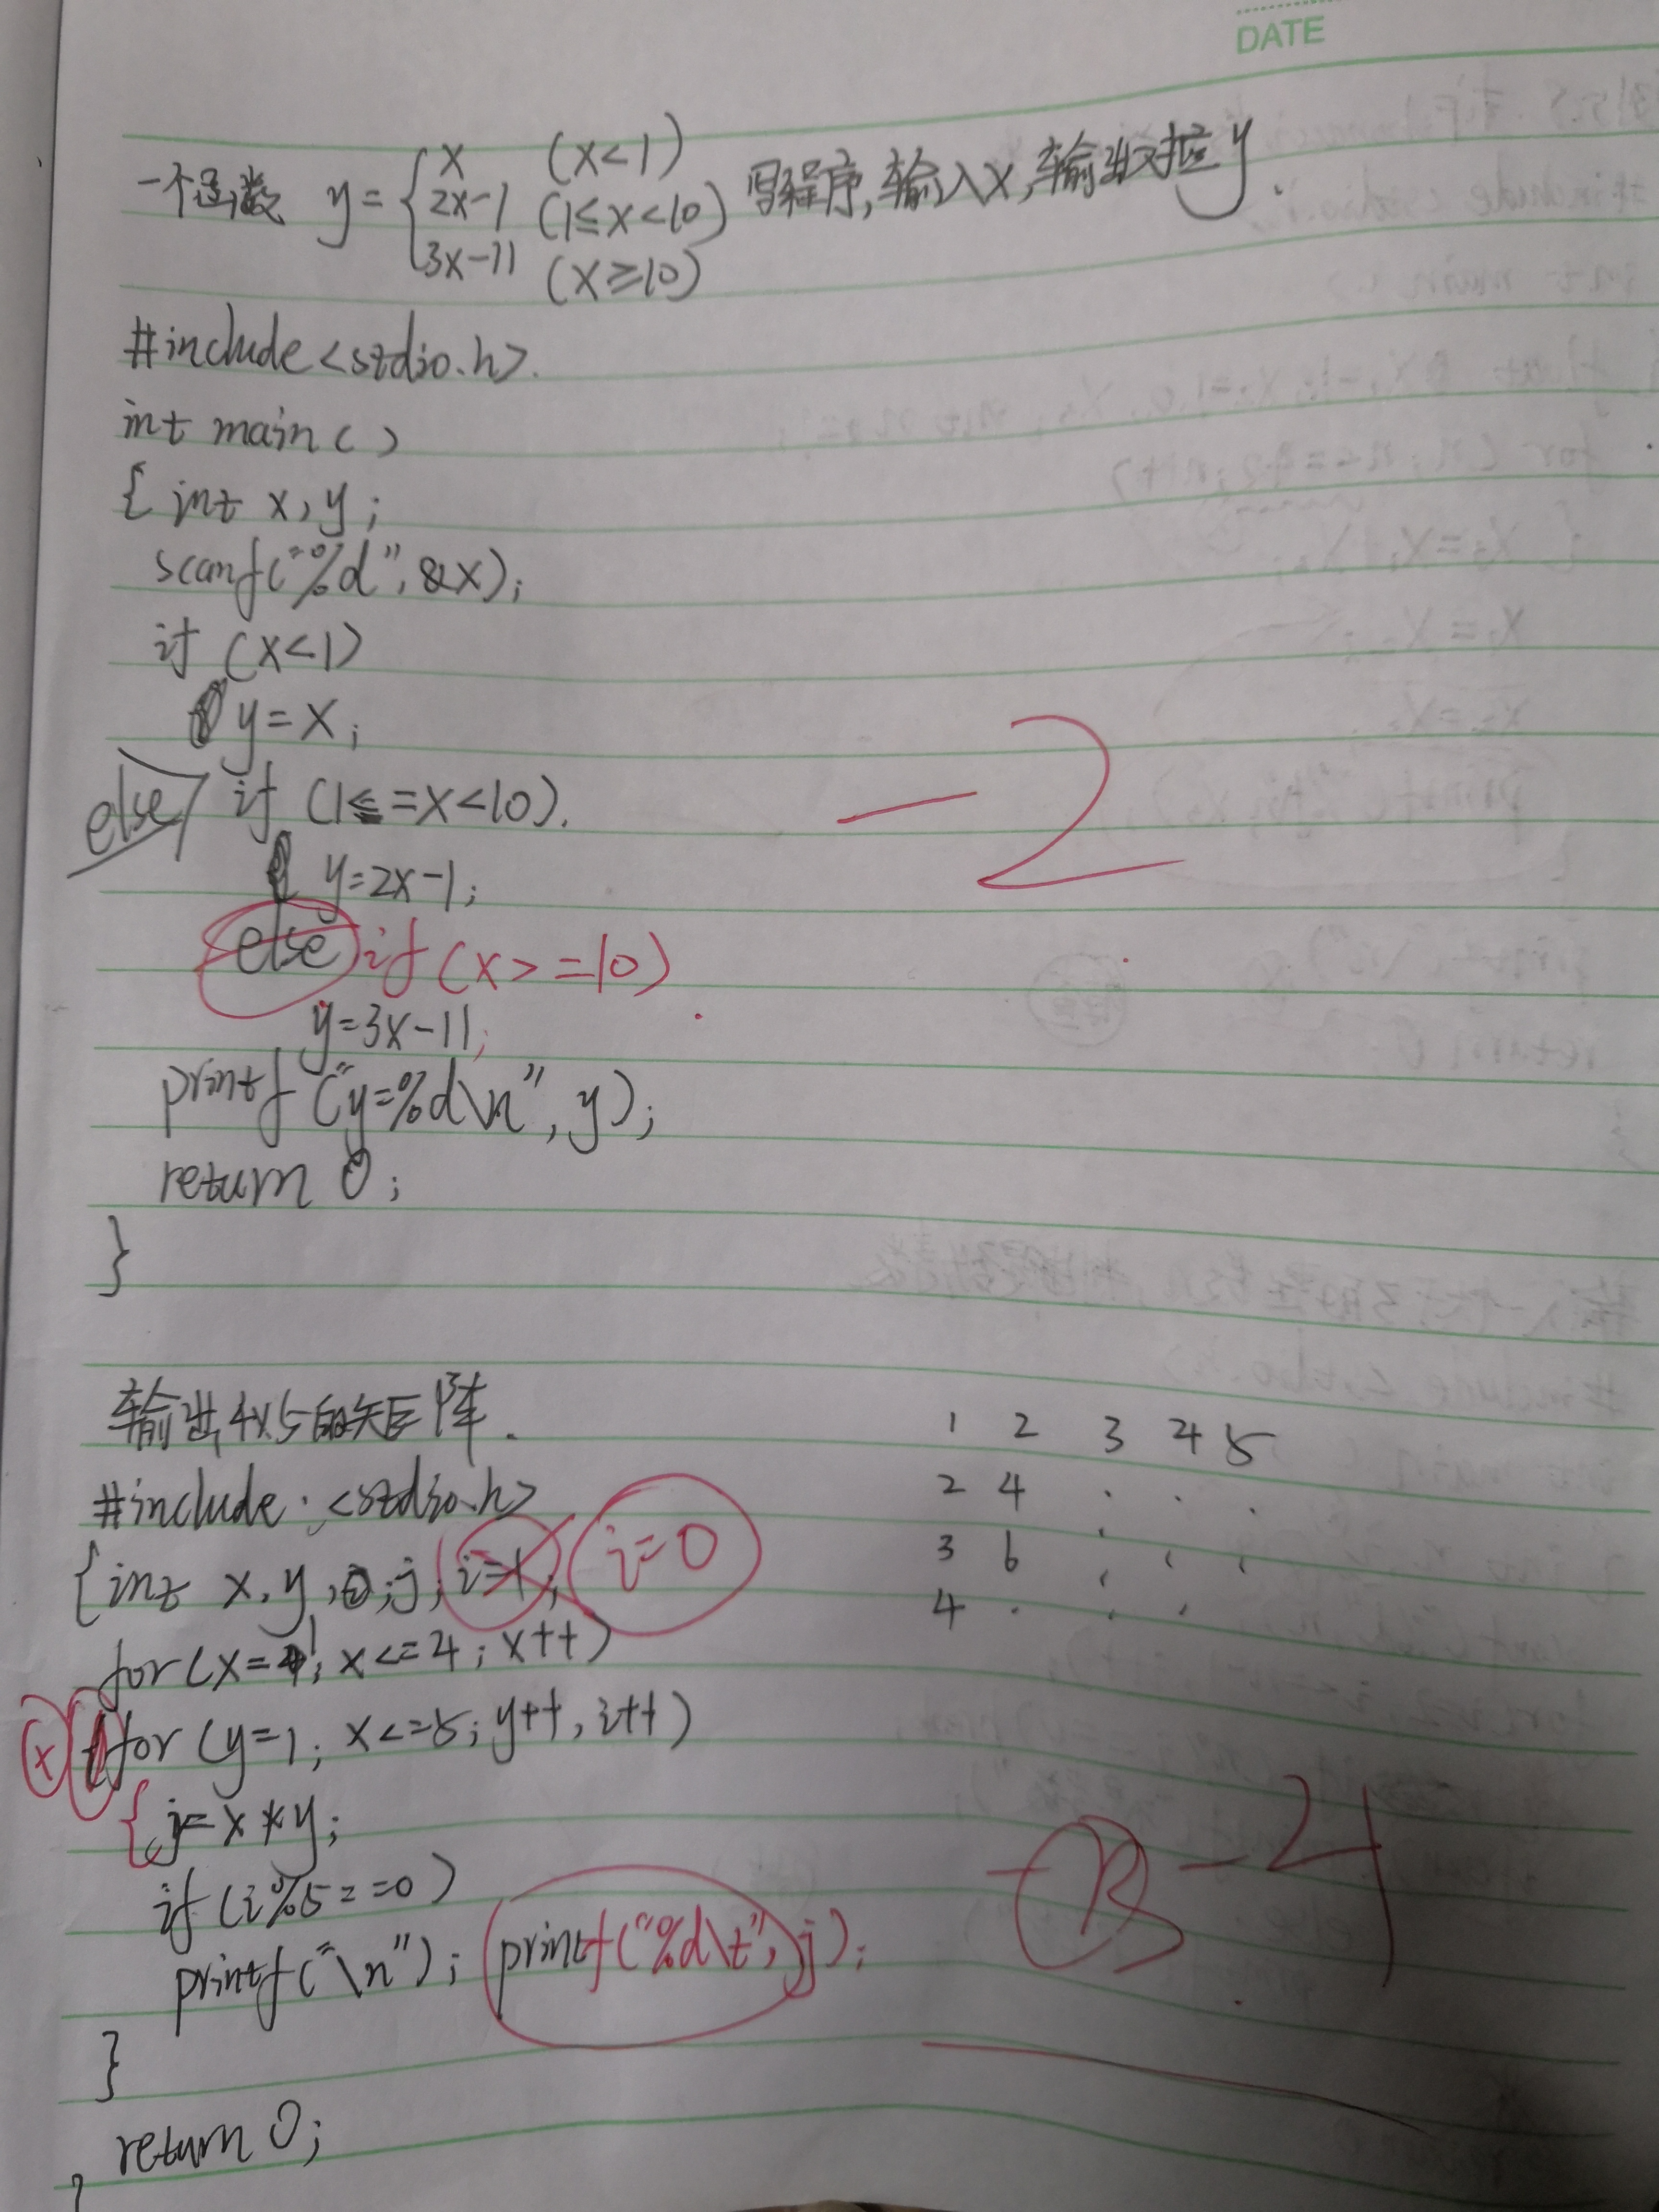 DATE
一个函数 y={x (x<1)
2x-1 (1≤x<10) 写程序,输入x,输出对应y.
3x-11 (x≥10)
#include<stdio.h>.
int main()
{ int x,y;
scanf("%d",&x);
if (x<1)
y=x;
else if (1<=x<10).
y=2x-1;
else if(x>=10)
y=3x-11;
printf("y=%d\n",y);
return 0;
}
-2
输出4x5的矩阵.
#include <stdio.h>
{int x,y,j,i=1; i=0
for(x=1; x<=4; x++)
x for (y=1; x<=5; y++, i++)
{j=x*y;
if(i%5==0)
printf("\n"); printf("%d\t",j);
}
return 0;
1 2 3 4 5
2 4 . . .
3 6 . . .
4 . . .
-4